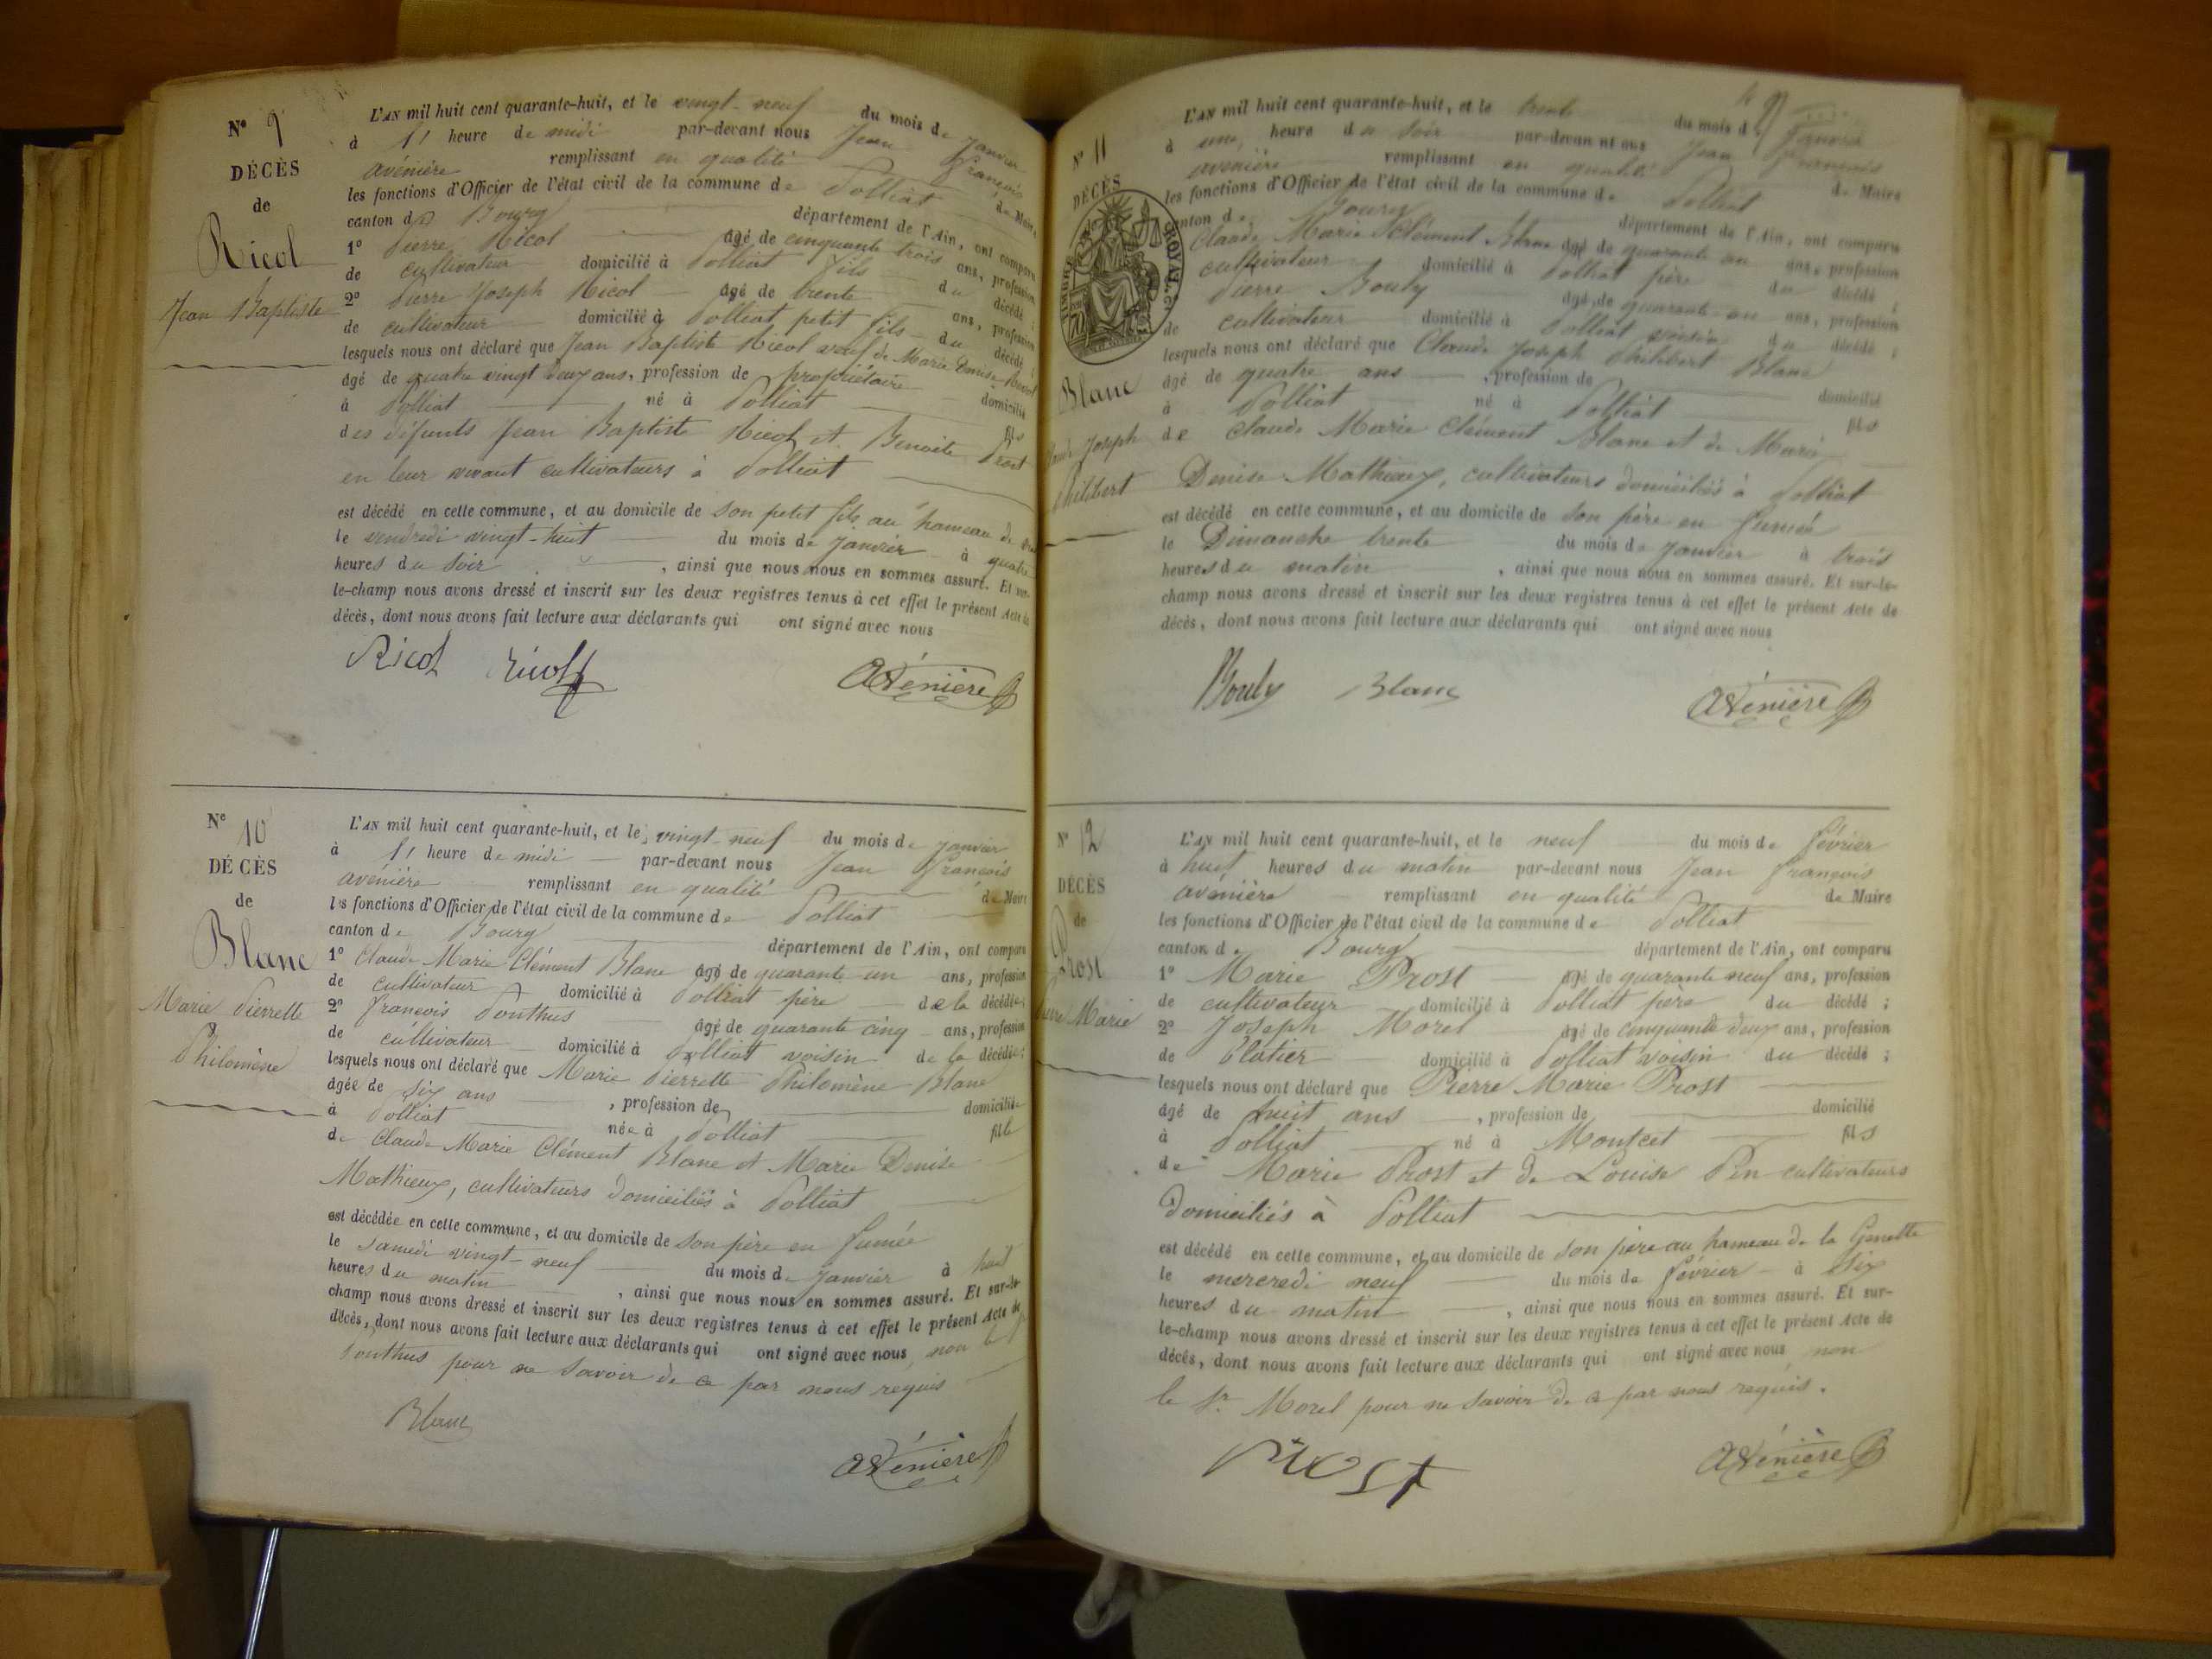 N° 9
DÉCÈS
de
Ricol
Jean Baptiste
L'AN mil huit cent quarante-huit, et le vingt-neuf du mois de Janvier
à l'heure de midi par-devant nous Jean François
avenière remplissant en qualité de Maire
les fonctions d'Officier de l'état civil de la commune de Polliat
canton de Bourg département de l'Ain, ont comparu
1° Pierre Ricol âgé de cinquante trois ans, profession
de cultivateur domicilié à Polliat fils du décédé ;
2° Pierre Joseph Ricol âgé de trente ans, profession
de cultivateur domicilié à Polliat petit fils du décédé ;
lesquels nous ont déclaré que Jean Baptiste Ricol veuf de Marie Denise
âgé de quatre vingt deux ans, profession de propriétaire domicilié
à Polliat né à Polliat fils
des défunts Jean Baptiste Ricol et Benoite Prost
en leur vivant cultivateurs à Polliat
est décédé en cette commune, et au domicile de son petit fils au hameau de
le vendredi vingt-huit du mois de Janvier à quatre
heures du soir, ainsi que nous nous en sommes assuré. Et sur-
le-champ nous avons dressé et inscrit sur les deux registres tenus à cet effet le présent Acte de
décès, dont nous avons fait lecture aux déclarants qui ont signé avec nous
Ricol Ricol Avenière
N° 10
DÉCÈS
de
Blanc
Marie Pierrette
Philomène
L'AN mil huit cent quarante-huit, et le vingt-neuf du mois de Janvier
à l'heure de midi par-devant nous Jean François
avenière remplissant en qualité de Maire
les fonctions d'Officier de l'état civil de la commune de Polliat
canton de Bourg département de l'Ain, ont comparu
1° Claude Marie Clément Blanc âgé de quarante-un ans, profession
de cultivateur domicilié à Polliat père de la décédée ;
2° François Ponthus âgé de quarante cinq ans, profession
de cultivateur domicilié à Polliat voisin de la décédée ;
lesquels nous ont déclaré que Marie Pierrette Philomène Blanc
âgée de six ans, profession de domiciliée
à Polliat née à Polliat fille
de Claude Marie Clément Blanc et Marie Denise
Mathieux, cultivateurs domiciliés à Polliat
est décédée en cette commune, et au domicile de son père en fumée
le samedi vingt-neuf du mois de Janvier à huit
heures du matin, ainsi que nous nous en sommes assuré. Et sur-le-
champ nous avons dressé et inscrit sur les deux registres tenus à cet effet le présent Acte de
décès, dont nous avons fait lecture aux déclarants qui ont signé avec nous, non le
Ponthus pour ne savoir de ce par nous requis
Blanc
Avenière
N° 11
DÉCÈS
TIMBRE ROYAL
Blanc
Claude Joseph
Philibert
L'AN mil huit cent quarante-huit, et le trente du mois de Janvier
à une heure du soir par-devant nous Jean François
avenière remplissant en qualité de Maire
les fonctions d'Officier de l'état civil de la commune de Polliat
canton de Bourg département de l'Ain, ont comparu
Claude Marie Clément Blanc âgé de quarante un ans, profession
cultivateur domicilié à Polliat père du décédé ;
Pierre Bouly âgé de quarante-un ans, profession
de cultivateur domicilié à Polliat voisin du décédé ;
lesquels nous ont déclaré que Claude Joseph Philibert Blanc
âgé de quatre ans, profession de domicilié
à Polliat né à Polliat fils
de Claude Marie Clément Blanc et de Marie
Denise Mathieux, cultivateurs domiciliés à Polliat
est décédé en cette commune, et au domicile de son père en fumée
le Dimanche trente du mois de Janvier à trois
heures du matin, ainsi que nous nous en sommes assuré. Et sur-le-
champ nous avons dressé et inscrit sur les deux registres tenus à cet effet le présent Acte de
décès, dont nous avons fait lecture aux déclarants qui ont signé avec nous
Bouly Blanc Avenière
N° 12
DÉCÈS
de
Prost
Pierre Marie
L'AN mil huit cent quarante-huit, et le neuf du mois de février
à huit heures du matin par-devant nous Jean François
avenière remplissant en qualité de Maire
les fonctions d'Officier de l'état civil de la commune de Polliat
canton de Bourg département de l'Ain, ont comparu
1° Marie Prost âgé de quarante neuf ans, profession
de cultivateur domicilié à Polliat père du décédé ;
2° Joseph Morel âgé de cinquante deux ans, profession
de domicilié à Polliat voisin du décédé ;
lesquels nous ont déclaré que Pierre Marie Prost
âgé de huit ans, profession de domicilié
à Polliat né à Montcet fils
de Marie Prost et de Louise Pin cultivateurs
domiciliés à Polliat
est décédé en cette commune, et au domicile de son père au hameau de la Genette
le mercredi neuf du mois de février à six
heures du matin, ainsi que nous nous en sommes assuré. Et sur-
le-champ nous avons dressé et inscrit sur les deux registres tenus à cet effet le présent Acte de
décès, dont nous avons fait lecture aux déclarants qui ont signé avec nous, non
le Sr Morel pour ne savoir de ce par nous requis.
Prost Avenière